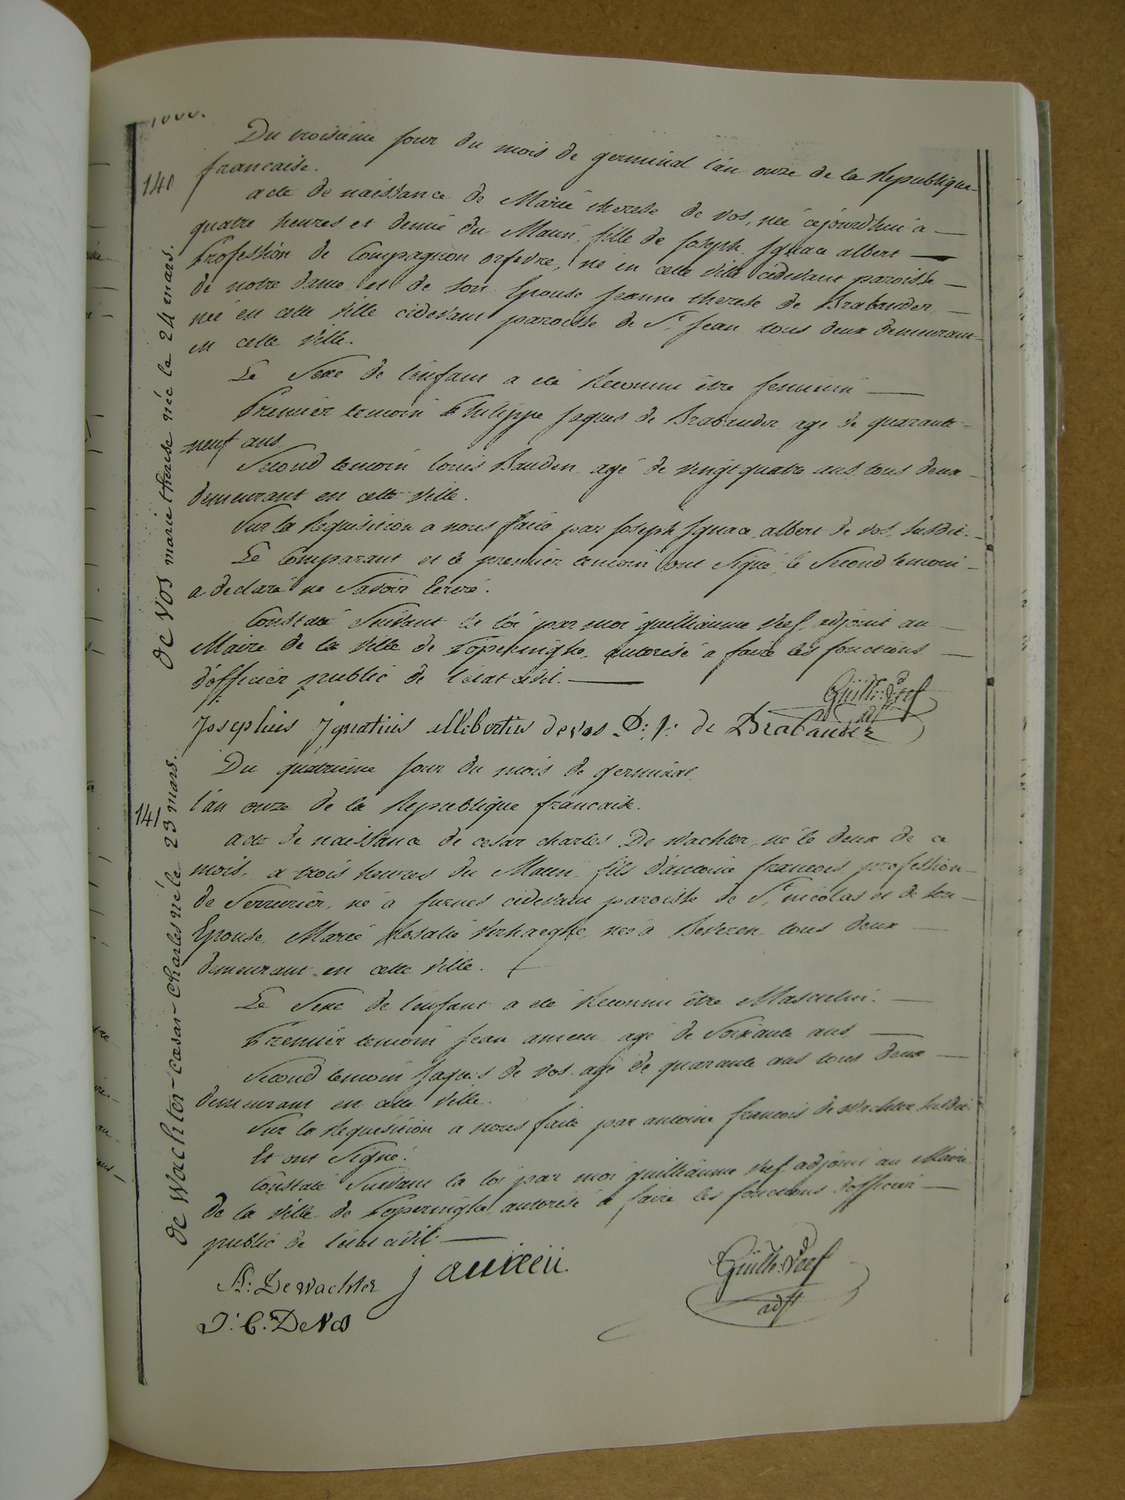 Du troisième jour du mois de germinal l'an onze de la Republique
française.
140
acte de naissance de Marie therese de vos, née cejourdhui à
quatre heures et demie du Matin, fille de Joseph Ignace albert
Profession de Compagnon orfevre, né en cette ville cidevant paroisse
de notre dame et de son Epouse Jeanne therese de Brabander,
née en cette ville cidevant paroisse de St Jean tous deux demeurant
en cette ville.
Le Sexe de l'enfant a été Reconnu être feminin
Premier temoin Philippe Jaques de Brabander agé de quarante
neuf ans
Second temoin louis Bauden agé de vingt quatre ans tous deux
demeurant en cette ville.
Sur la Requisition a nous faite par Joseph Ignace albert de vos, susdit.
Le Comparant et le premier temoin ont Signé, le Second temoin
a declaré ne Savoir Ecrire.
Constaté Suivant la loi par moi guilliaume Reef adjoint au
Maire de la ville de Poperinghe, autorisé à faire les fonctions
d'officier public de l'état civil.
Guilh: Reef
adjt
Josephus Ignatius Albertus de vos P: J: de Brabander
de Vos marie therese née le 24 mars.
Du quatrième jour du mois de germinal
l'an onze de la Republique française.
141
acte de naissance de cesar charles De Wachter, né le deux de ce
mois, a trois heures du Matin, fils d'antoine francois profession
de Serrurier, né à furnes cidevant paroisse de St nicolas et de son
Epouse Marie Rosalie Verhaeghe, née à Beveren tous deux
demeurant en cette ville.
Le Sexe de l'enfant a été Reconnu être Masculin.
Premier temoin Jean agé de Soixante ans
Second temoin Jaques de vos agé de quarante ans tous deux
demeurant en cette ville.
Sur la Requisition a nous faite par antoine francois de Wachter susdit
Et ont Signé.
Constaté Suivant la loi par moi guilliaume Reef adjoint au Maire
de la ville de Poperinghe autorisé à faire les fonctions d'officier
public de l'état civil.
de Wachter - Cæsar - Charles né le 23 mars.
A: De Wachter
Guilh: Reef
adjt
J: C: De Vos